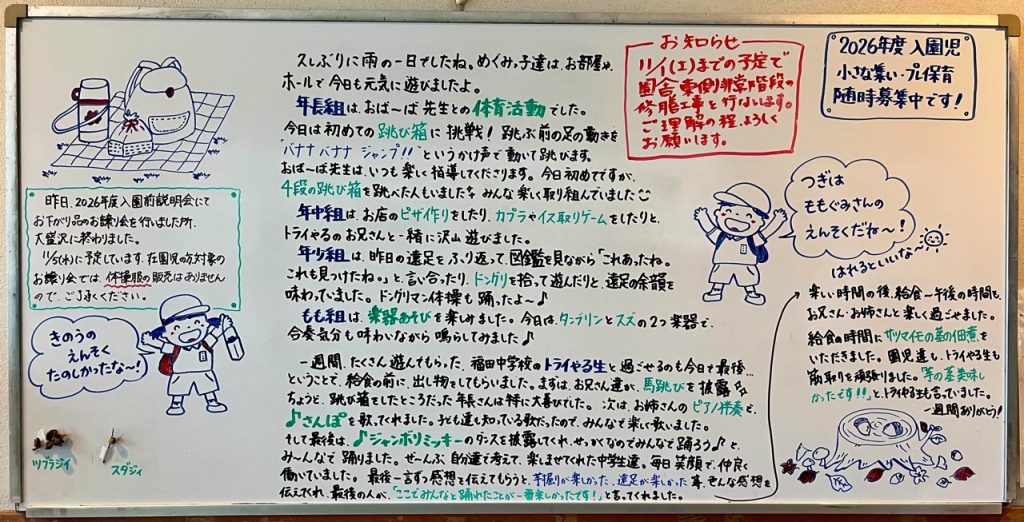 久しぶりに雨の一日でしたね。めぐみっ子達は、お部屋や、
ホールで今日も元気に遊びましたよ。
年長組は、おば〜ば先生との体育活動でした。
今日は初めての跳び箱に挑戦！跳ぶ前の足の動きを
"バナナ バナナ ジャンプ!!"というかけ声で動いて跳びます。
おば〜ば先生は、いつも楽しく指導してくださります。今日初めてですが、
4段の跳び箱を跳べた人もいました みんな楽しく取り組んでいました
年中組は、お店のピザ作りをしたり、カプラやイス取りゲームをしたりと、
トライやるのお兄さんと一緒に沢山遊びました。
年少組は、昨日の遠足をふり返って、図鑑を見ながら「これあったね。
これも見つけたね。」と、言い合ったり、ドングリを拾って遊んだりと、遠足の余韻を
味わっていました。ドングリマン体操も踊ったよ〜♪
もも組は、楽器あそびを楽しみました。今日は、タンブリンとスズの2つ楽器で、
合奏気分も味わいながら鳴らしてみました♪
一週間、たくさん遊んでもらった、福田中学校のトライやる生と過ごせるのも今日で最後…
ということで、給食の前に、出し物をしてもらいました。まずは、お兄さん達が、馬跳びを披露
ちょうど、跳び箱をしたところだった年長さんは特に大喜びでした。次は、お姉さんのピアノ伴奏で、
♪さんぽを歌ってくれました。子ども達も知っている歌だったので、みんなで楽しく歌いました。
そして最後は、♪ジャンボリミッキーのダンスを披露してくれ、せっかくなのでみんなで踊ろう♪と、
み〜んなで踊りました。ぜーんぶ自分達で考えて、楽しませてくれた中学生達。毎日笑顔で、仲良く
働いていました。最後一言ずつ感想を伝えてもらうと、芋掘りが楽しかった、遠足が楽しかった等、色んな感想を
伝えてくれ、最後の人が、「ここでみんなと踊れたことが一番楽しかったです！」と言ってくれました。
楽しい時間の後、給食〜午後の時間も、
お兄さん・お姉さんと楽しく過ごせました。
給食の時間にサツマイモの茎の佃煮を
いただきました。園児達も、トライやる生も
筋取りを頑張りました。「芋の茎美味し
かったです!!」と、トライやる生も言っていました。
一週間ありがとう！
お知らせ
11/1(土)までの予定で
園舎東側非常階段の
修膳工事を行ないます。
ご理解の程、よろしく
お願います。
2026年度 入園児
小さな集い・プレ保育
随時募集中です！
つぎは
ももぐみさんの
えんそくだね〜！
はれるといいな〜
昨日、2026年度入園前説明会にて
お下がり品のお譲り会を行いました所、
大盛況に終わりました。
11/5(水)に予定しています在園児の方対象の
お譲り会では、体操服の販売はありません
ので、ご了承ください。
きのうの
えんそく
たのしかったな〜！
ツブラジイ
スダジイ